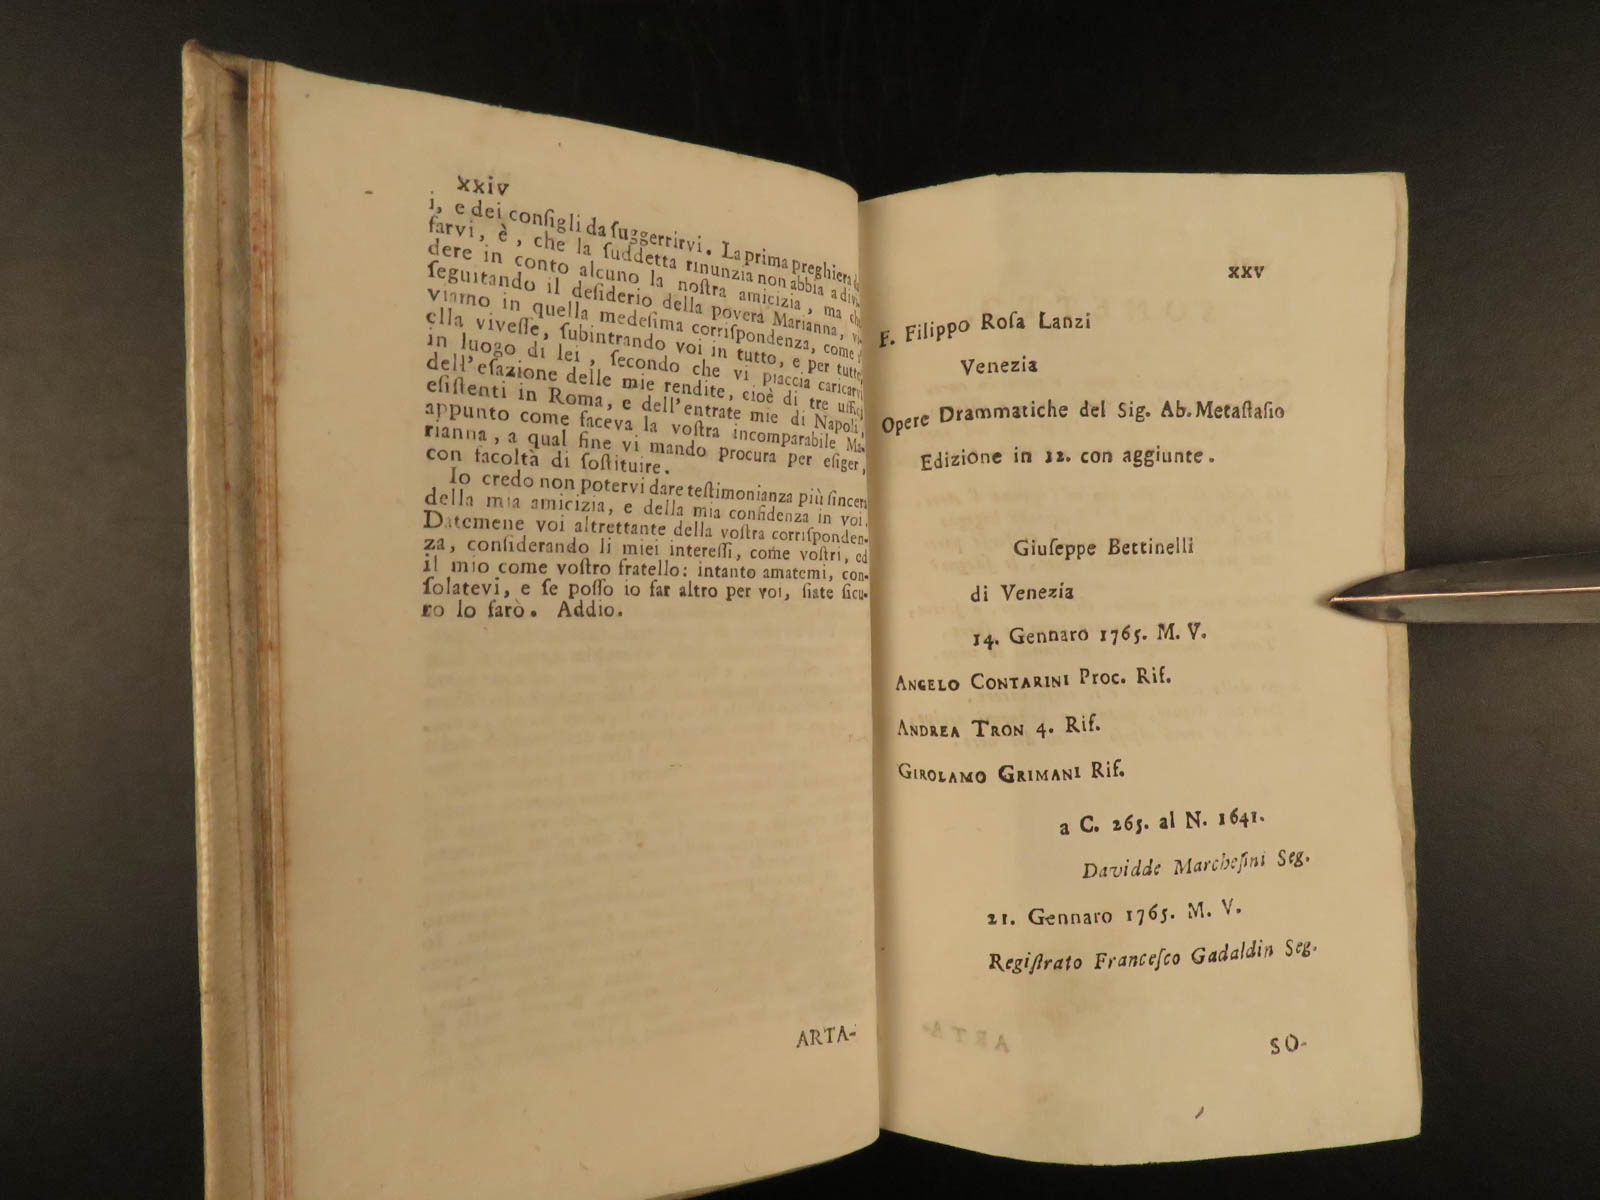 xxiv
i, e dei conſigli da ſuggerirvi. La prima preghiera
farvi, è, che la ſuddetta rinunzia non abbia a divi-
dere in conto alcuno la noſtra amicizia, ma che
ſeguitando il deſiderio della povera Marianna, vi-
viamo in quella medeſima corriſpondenza, come
ella viveſſe, ſubintrando voi in tutto, e per tutto
in luogo di lei, ſecondo che vi piaccia caricarvi
dell'eſazione delle mie rendite, cioè di tre uffici
eſiſtenti in Roma, e dell'entrate mie di Napoli,
appunto come faceva la voſtra incomparabile Ma-
rianna, a qual fine vi mando procura per eſiger,
con facoltà di ſoſtituire.
Io credo non potervi dare teſtimonianza più ſincera
della mia amicizia, e della mia confidenza in voi.
Datemene voi altrettante della voſtra corriſponden-
za, conſiderando li miei intereſſi, come voſtri, ed
il mio come voſtro fratello: intanto amatemi, con-
ſolatevi, e ſe poſſo io far altro per voi, ſiate ſicu-
ro lo farò. Addio.
ARTA-
xxv
F. Filippo Roſa Lanzi
Venezia
Opere Drammatiche del Sig. Ab. Metaſtaſio
Edizione in 12. con aggiunte.
Giuſeppe Bettinelli
di Venezia
14. Gennaro 1765. M. V.
ANGELO CONTARINI Proc. Rif.
ANDREA TRON 4. Rif.
GIROLAMO GRIMANI Rif.
a C. 265. al N. 1641.
Davidde Marcheſini Seg.
21. Gennaro 1765. M. V.
Regiſtrato Franceſco Gadaldin Seg.
SO-